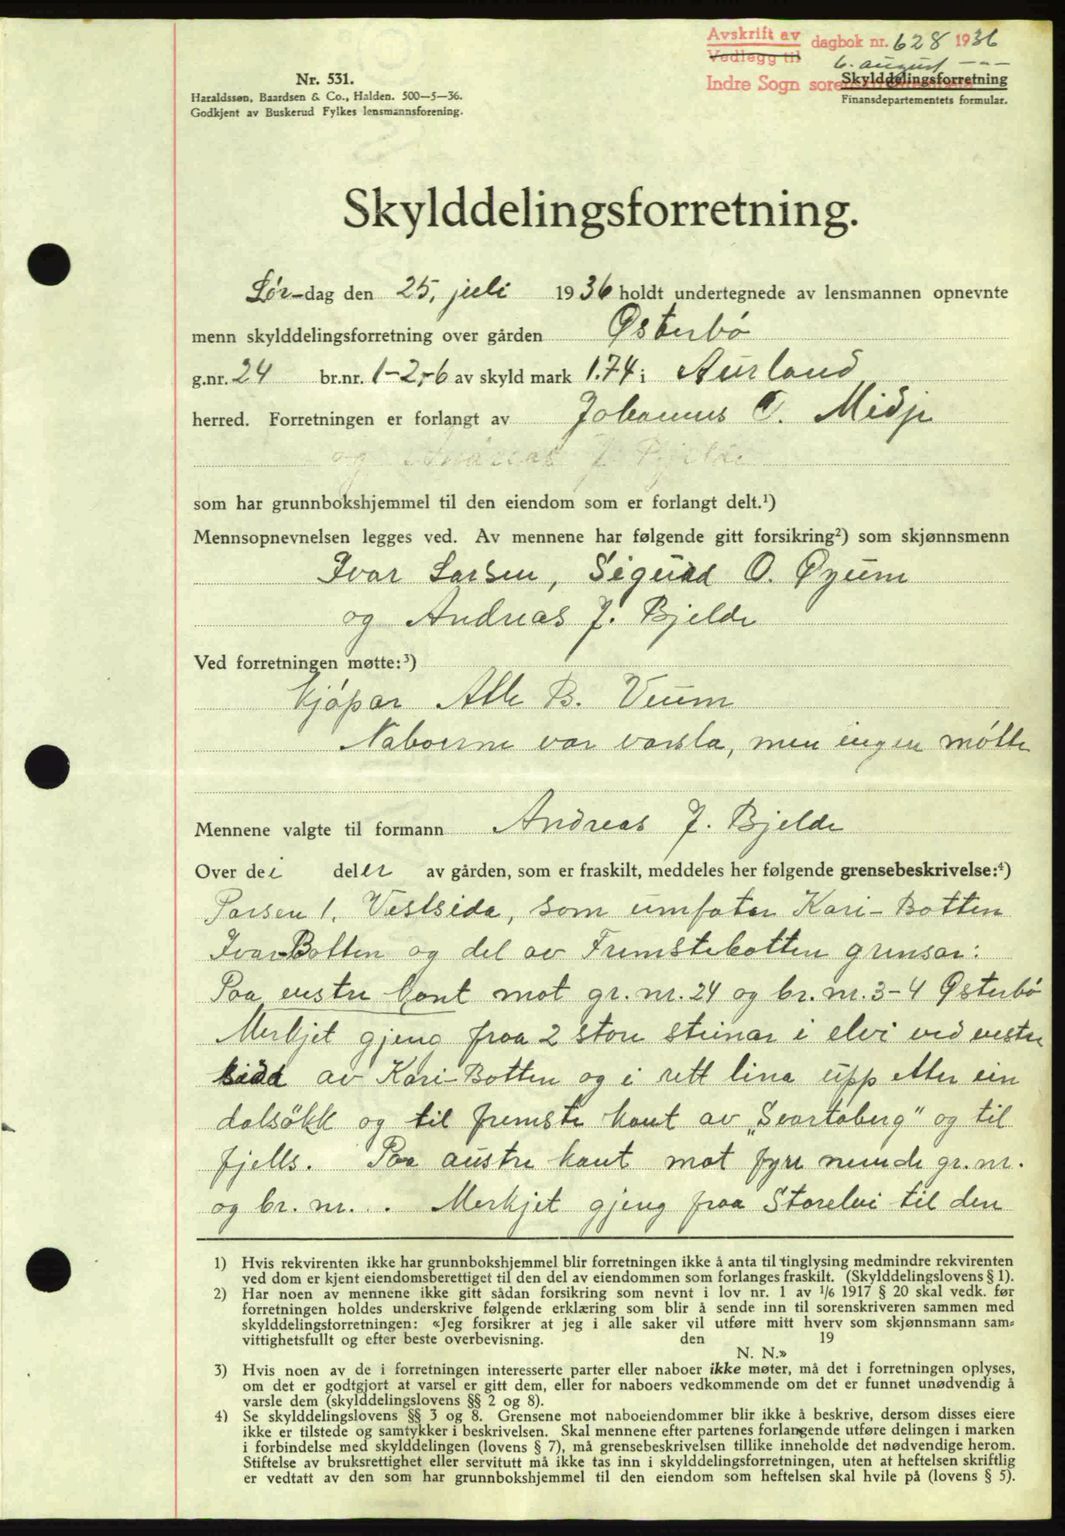 Avskrift av dagbok nr. 628 1936
Vedlegg til 6. august
Indre Sogn
Nr. 531.
Haraldssøn, Baardsen & Co., Halden. 500—5—36.
Godkjent av Buskerud Fylkes lensmannsforening.
Skylddelingsforretning
Finansdepartementets formular.
Skylddelingsforretning.
Lør-dag den 25. juli 1936 holdt undertegnede av lensmannen opnevnte
menn skylddelingsforretning over gården Østerbø
g.nr. 24 br.nr. 1-2,-6 av skyld mark 1.74 i Aurland
herred. Forretningen er forlangt av Johannes T. Midje
og Andreas J. Bjelde
som har grunnbokshjemmel til den eiendom som er forlangt delt.¹)
Mennsopnevnelsen legges ved. Av mennene har følgende gitt forsikring²) som skjønnsmenn
Ivar Larsen, Sigurd O. Øyum
og Andreas J. Bjelde
Ved forretningen møtte:³)
Kjøpar Atle B. Veum
Naboerne var varsla, men ingen møtte
Mennene valgte til formann Andreas J. Bjelde
Over dei deler av gården, som er fraskilt, meddeles her følgende grensebeskrivelse:⁴)
Parsen 1. Vestsida, som umfatar Kari-Botten
Ivar-Botten og del av Fremstebotten grensar:
Paa vestre kant mot gr. nr. 24 og br. nr. 3-4 Østerbø
Merkjet gjeng fraa 2 store steinar i elvi ved vestre
sida av Kari-Botten og i rett lina upp etter ein
dalsökk og til fremste kant av „Svartaberg" og til
fjells. Paa austre kant mot fyre nemnde gr. nr.
og br. nr. . Merkjet gjeng fraa Storelvi til den
1) Hvis rekvirenten ikke har grunnbokshjemmel blir forretningen ikke å anta til tinglysing medmindre rekvirenten
ved dom er kjent eiendomsberettiget til den del av eiendommen som forlanges fraskilt. (Skylddelingslovens § 1).
2) Har noen av mennene ikke gitt sådan forsikring som nevnt i lov nr. 1 av ¹/₆ 1917 § 20 skal vedk. før
forretningen holdes underskrive følgende erklæring som blir å sende inn til sorenskriveren sammen med
skylddelingsforretningen: «Jeg forsikrer at jeg i alle saker vil utføre mitt hverv som skjønnsmann sam-
vittighetsfullt og efter beste overbevisning. den 19
N. N.»
3) Hvis noen av de i forretningen interesserte parter eller naboer ikke møter, må det i forretningen oplyses,
om det er godtgjort at varsel er gitt dem, eller for naboers vedkommende om det er funnet unødvendig å
varsle dem (skylddelingslovens §§ 2 og 8).
4) Se skylddelingslovens §§ 3 og 8. Grensene mot naboeiendommer blir ikke å beskrive, dersom disses eiere
ikke er tilstede og samtykker i beskrivelsen. Skal mennene efter partenes forlangende utføre delingen i marken
i forbindelse med skylddelingen (lovens § 7), må grensebeskrivelsen tillike inneholde det nødvendige herom.
Stiftelse av bruksrettighet eller servitutt må ikke tas inn i skylddelingsforretningen, uten at heftelsen skriftlig
er vedtatt av den som har grunnbokshjemmel til den eiendom som heftelsen skal hvile på (lovens § 5).